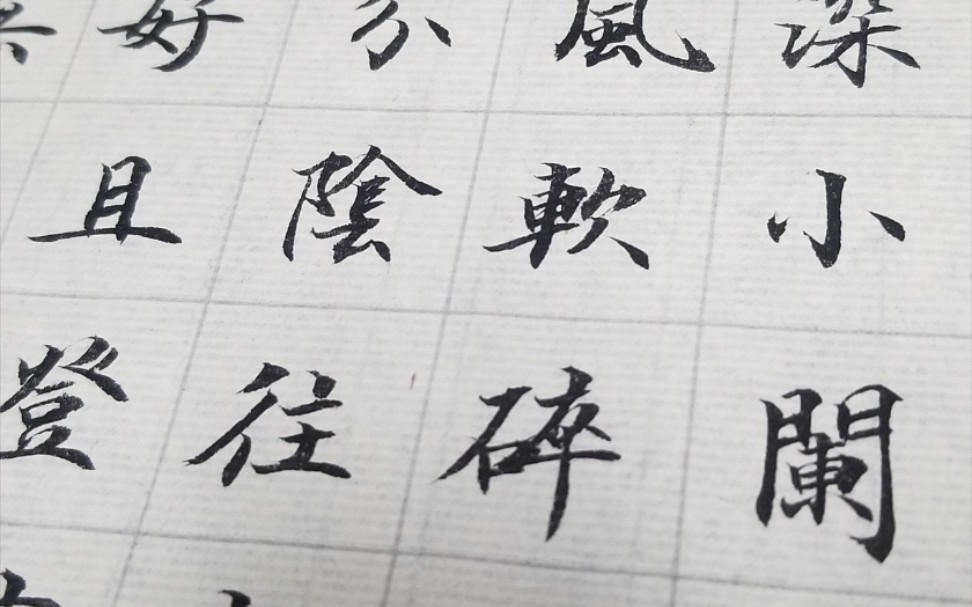 深小闌
風軟碎
分陰往
好且登